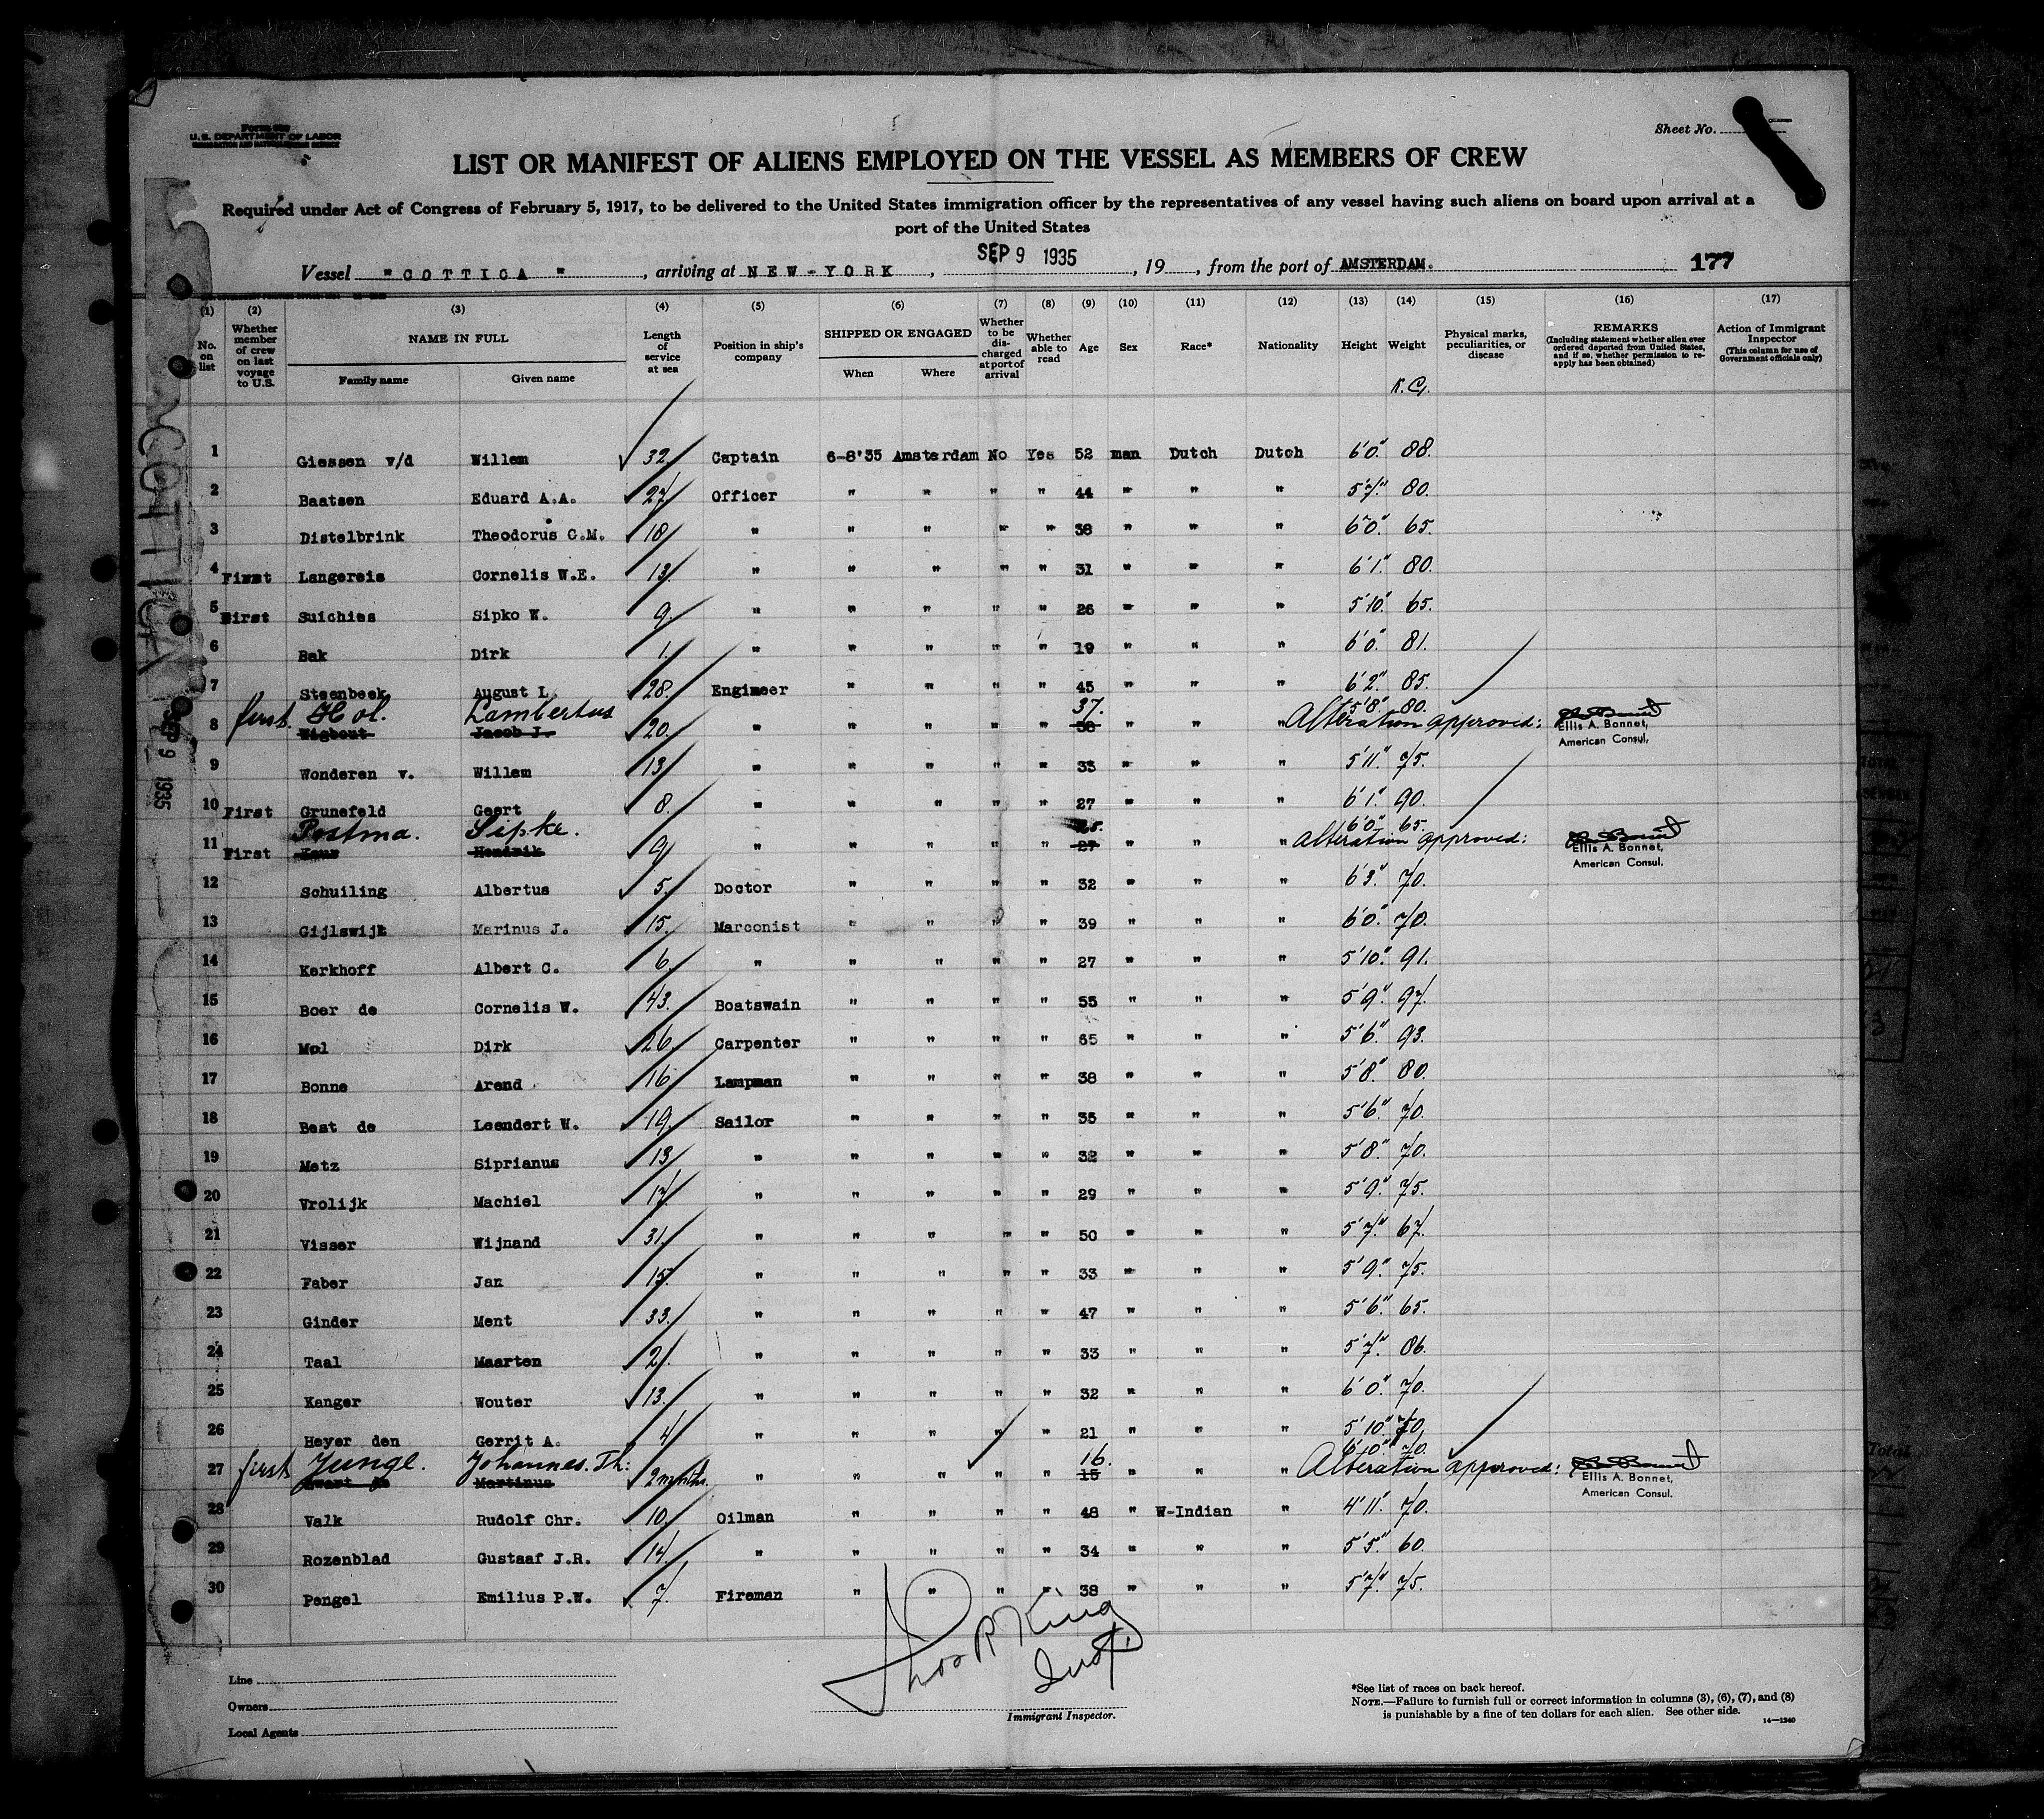 U.S. DEPARTMENT OF LABOR
Sheet No.
LIST OR MANIFEST OF ALIENS EMPLOYED ON THE VESSEL AS MEMBERS OF CREW
Required under Act of Congress of February 5, 1917, to be delivered to the United States immigration officer by the representatives of any vessel having such aliens on board upon arrival at a
port of the United States
Vessel "COTTICA", arriving at NEW-YORK, SEP 9 1935, 19, from the port of AMSTERDAM. 177
(1) (2) (3) (4) (5) (6) (7) (8) (9) (10) (11) (12) (13) (14) (15) (16) (17)
No. on list
Whether member of crew on last voyage to U.S.
NAME IN FULL
Family name
Given name
Length of service at sea
Position in ship's company
SHIPPED OR ENGAGED
When
Where
Whether to be discharged at port of arrival
Whether able to read
Age
Sex
Race*
Nationality
Height
Weight
K.G.
Physical marks, peculiarities, or disease
REMARKS
(Including statement whether alien ever ordered deported from United States, and if so, whether permission to reapply has been obtained)
Action of Immigrant Inspector
(This column for use of Government officials only)
1 Giessen v/d Willem 32 Captain 6-8'35 Amsterdam No Yes 52 man Dutch Dutch 6'0" 88.
2 Baatsen Eduard A.A. 27 Officer " " " " 44 " " " 5'7" 80.
3 Distelbrink Theodorus C.M. 18 " " " " " 38 " " " 6'0" 65.
4 First Langereis Cornelis W.E. 13 " " " " " 31 " " " 6'1" 80.
5 First Suichies Sipko W. 9 " " " " " 26 " " " 5'10" 65.
6 Bak Dirk 1 " " " " " 19 " " " 6'0" 81.
7 Steenbeek Engineer August L. 28 " " " " 45 " " " 6'2" 85.
first Hol. Lambertus 37. 5'8" 80.
8 Wigbout Jacob J. 20 " " " " " 36 " " " Alteration approved: Ellis A. Bonnet, American Consul,
9 Wonderen v. Willem 13 " " " " " 33 " " " 5'11" 75.
10 First Grunefeld Geert 8 " " " " " 27 " " " 6'1" 90.
Postma. Sipke. 6'0" 65.
11 First Hendrik 9 " " " " " 27 " " " Alteration approved: Ellis A. Bonnet, American Consul.
12 Schuiling Albertus 5 Doctor " " " " 32 " " " 6'3" 70.
13 Gijlswijk Marinus J. 15 Marconist " " " " 39 " " " 6'0" 70.
14 Kerkhoff Albert C. 6 " " " " " 27 " " " 5'10" 91.
15 Boer de Cornelis W. 43 Boatswain " " " " 55 " " " 5'9" 97.
16 Mol Dirk 26 Carpenter " " " " 65 " " " 5'6" 93.
17 Bonne Arend 16 Lampman " " " " 38 " " " 5'8" 80.
18 Best de Leendert W. 19 Sailor " " " " 35 " " " 5'6" 70.
19 Metz Siprianus 13 " " " " " 32 " " " 5'8" 70.
20 Vrolijk Machiel 17 " " " " " 29 " " " 5'9" 75.
21 Visser Wijnand 31 " " " " " 50 " " " 5'7" 67.
22 Faber Jan 15 " " " " " 33 " " " 5'9" 75.
23 Ginder Ment 33 " " " " " 47 " " " 5'6" 65.
24 Taal Maarten 2 " " " " " 33 " " " 5'7" 86.
25 Kanger Wouter 13 " " " " " 32 " " " 6'0" 70.
26 Heyer den Gerrit A. 4 " " " " " 21 " " " 5'10" 70.
first Junge. Johannes. Th: 16. 6'0" 70.
27 Martinus 2 months. " " " " " 15 " " " Alteration approved: Ellis A. Bonnet, American Consul.
28 Valk Rudolf Chr. 10 Oilman " " " " 48 " W-Indian " 4'11" 70.
29 Rozenblad Gustaaf J.R. 14 " " " " " 34 " " " 5'5" 60.
30 Pengel Emilius P.W. 7. Fireman " " " " 38 " " " 5'7" 75.
Thos R King
Insp.
Line
Owners
Local Agents
Immigrant Inspector.
*See list of races on back hereof.
NOTE.—Failure to furnish full or correct information in columns (3), (6), (7), and (8)
is punishable by a fine of ten dollars for each alien. See other side.
14—1240
COTTICA
SEP 9 1935